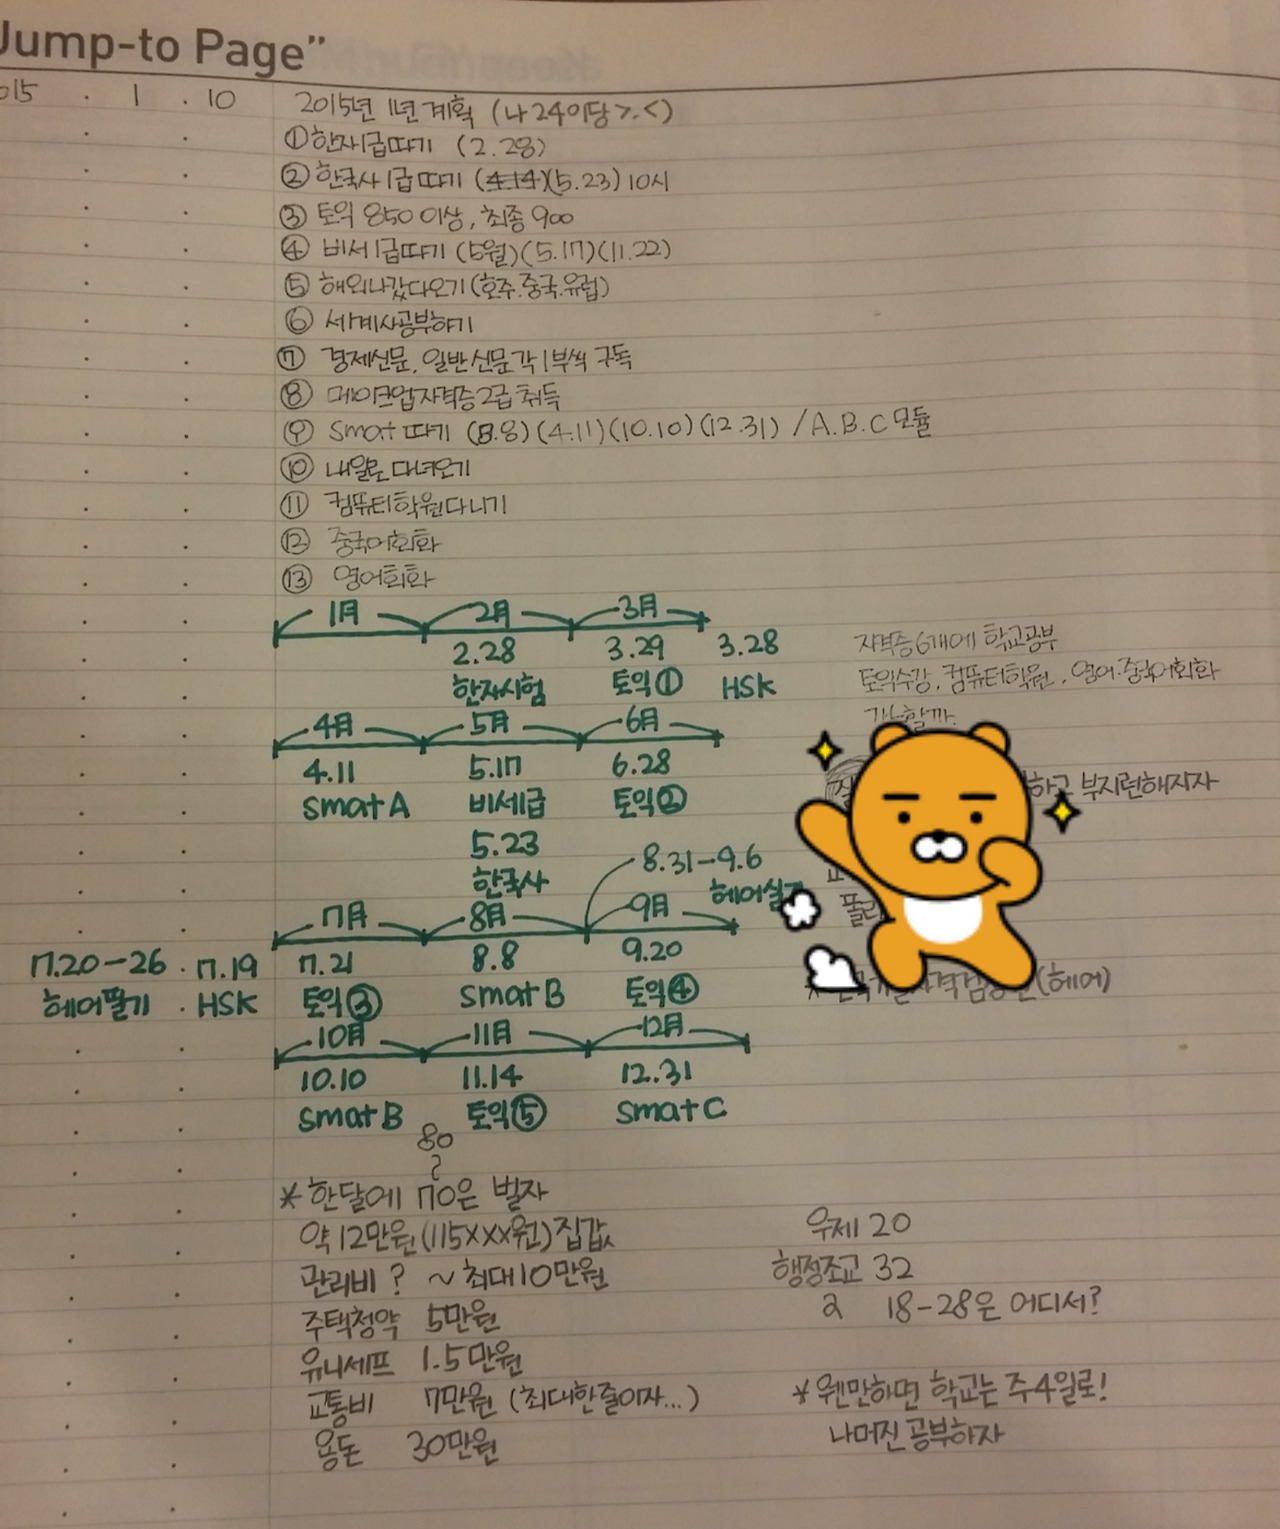 Jump-to Page"
015 . 1 . 10 2015년 1년 계획 (나 24이당 >.<)
① 한자1급따기 (2.28)
② 한국사 1급 따기 (4.14)(5.23) 10시
③ 토익 850 이상, 최종 900
④ 비서1급따기 (5월)(5.17)(11.22)
⑤ 해외나갔다오기(호주.중국.유럽)
⑥ 세계사공부하기
⑦ 경제신문, 일반신문 각 1부씩 구독
⑧ 메이크업자격증2급 취득
⑨ smat 따기 (8.8)(4.11)(10.10)(12.31) /A.B.C 모듈
⑩ 내일로 다녀오기
⑪ 컴퓨터학원다니기
⑫ 중국어회화
⑬ 영어회화
1月 2月 3月
2.28 3.29 3.28
한자시험 토익① HSK
자격증 6개에 학교공부
토익수강, 컴퓨터학원, 영어·중국어회화
가능할까
4月 5月 6月
4.11 5.17 6.28
smat A 비세급 토익②
하고 부지런해지자
5.23
한국사
8.31-9.6
헤어실
7月 8月 9月
7.20-26 . 7.19 7.21 8.8 9.20
헤어필기 . HSK 토익③ smat B 토익④
(헤어)
10月 11月 12月
10.10 11.14 12.31
smat B 토익⑤ smat C
80
?
* 한달에 70은 벌자
약 12만원(115XXX원) 집값
관리비 ? ~최대10만원
주택청약 5만원
유니세프 1.5만원
교통비 7만원 (최대한줄이자...)
용돈 30만원
우제 20
행정조교 32
2 18-28은 어디서?
* 웬만하면 학교는 주4일로!
나머진 공부하자